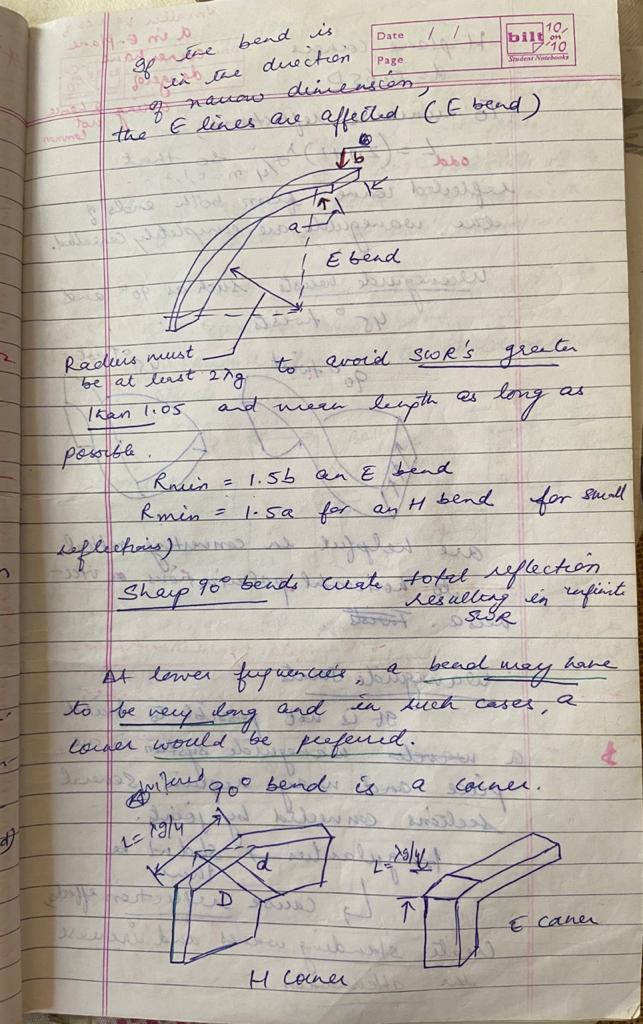 Date / /
Page
bilt 10 on 10
Student Notebooks
If the bend is
in the direction
of narrow dimension,
the E lines are affected (E bend)
b
a
E bend
Radius must
be at least 2λg to avoid SWR's greater
than 1.05 and mean length as long as
possible.
Rmin = 1.5b an E bend
Rmin = 1.5a for an H bend for small
reflections)
Sharp 90° bends create total reflection
resulting in infinite
SWR
At lower frequencies, a bend may have
to be very long and in such cases, a
corner would be preferred.
90° bend is a corner.
L = λg/4
d
D
H corner
L = λg/4
E corner